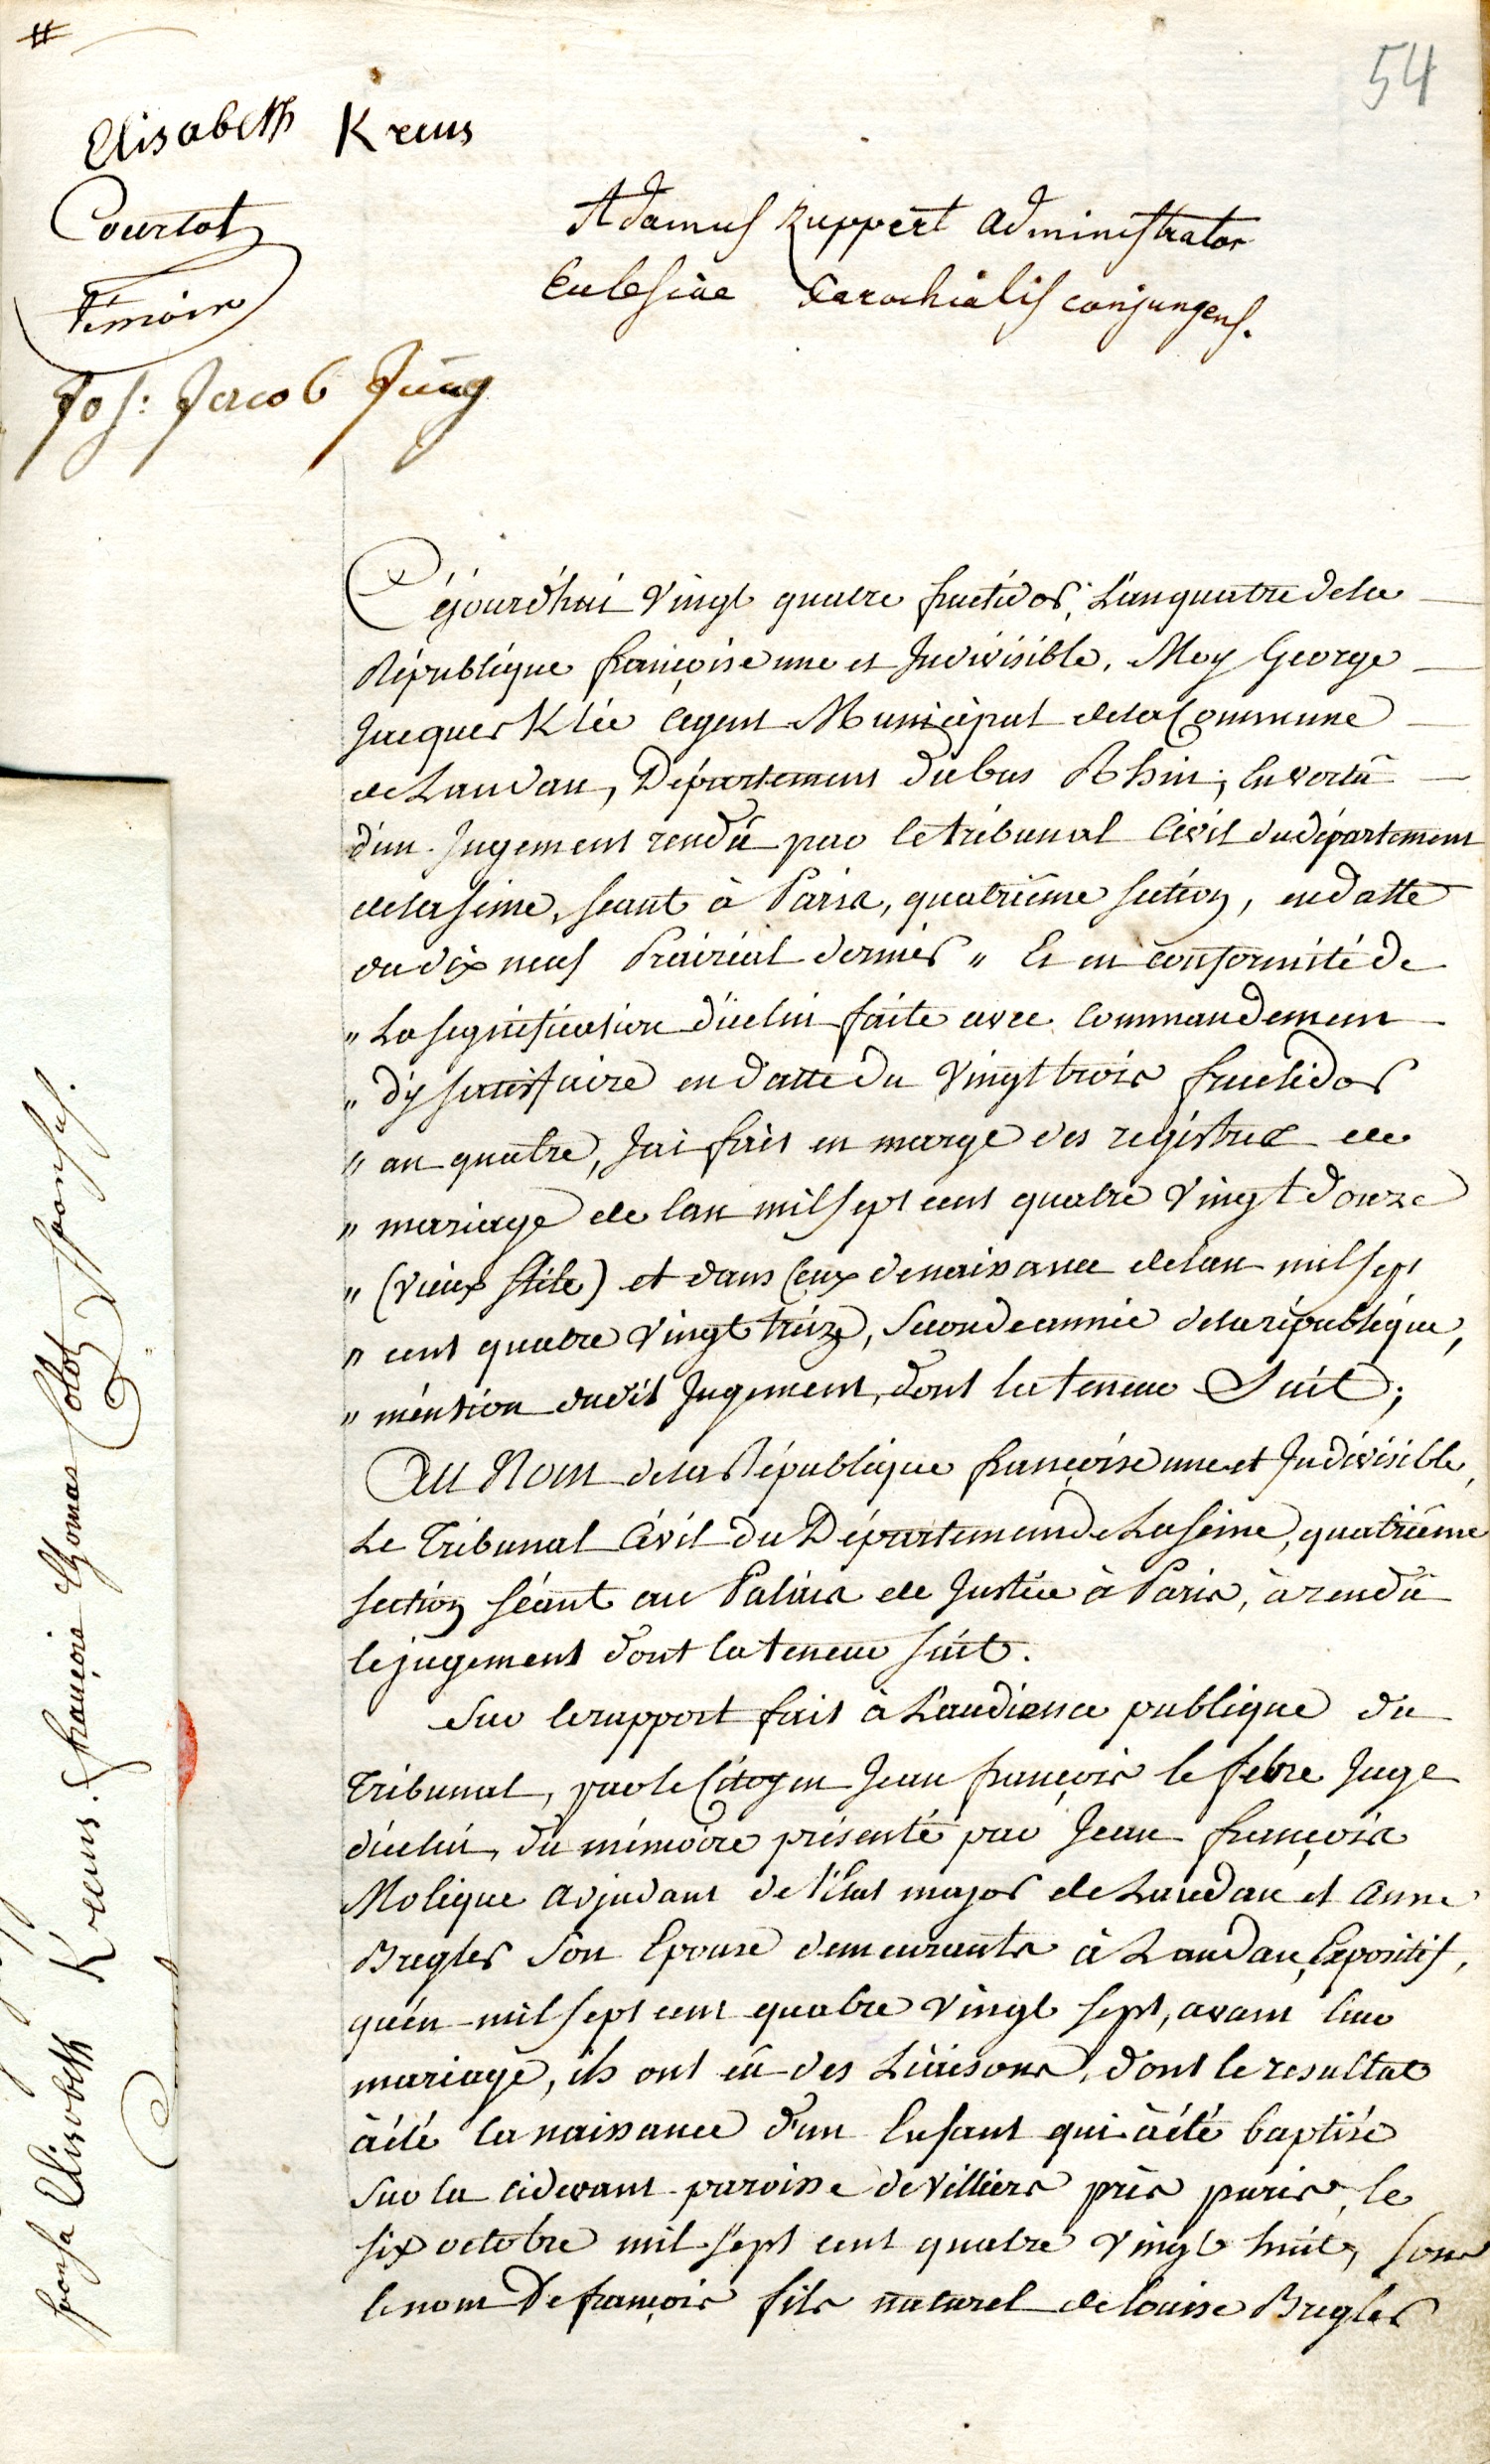 54
Elisabeth Kreus
Courtot
témoin
Jos: Jacob Jüng
Adamus Ruppert administrator
Ecclesiae Parochialis conjungens.
Céjourd'hui vingt quatre fructidor, L'an quatre de la
République françoise une et Indivisible, Moy George
Jacques Klée agent Municipal de la Commune
de Landau, Département du bas Rhin, En vertû
d'un Jugement rendû par le tribunal Civil du département
de la seine, séant à Paris, quatriême section, en datte
du dix neuf Prairial dernier " Et en conformité de
" La signification d'icelui faite avec commandement
" d'y satisfaire en datte du vingt trois fructidor
" an quatre, J'ai fait en marge des régistres de
" mariage de l'an mil sept cent quatre vingt douze
" (vieux stile) et dans ceux de naissance de l'an mil sept
" cent quatre vingt treize, seconde année de la république,
" méntion du dit Jugement, dont la teneur Suit;
Au Nom de la République françoise une et Indivisible,
Le Tribunal Civil du Département de La Seine, quatriême
section séant au Palais de Justice à Paris, à rendû
le jugement dont la teneur suit.
Sur le rapport fait à L'audience publique du
Tribunal, par le Citoyen Jean françois le febre Juge
d'icelui, du mémoire présenté par Jean françois
Molique adjudant de l'état major de Landau et Anne
Bregler son Epouse demeurants à Landau, Expositif,
qu'en mil sept cent quatre vingt sept, avant leur
mariage, ils ont eû des Liaisons, dont le resultat
à été la naissance d'un Enfant qui à été baptisé
sur la cidevant paroisse de Villiers près paris, le
six octobre mil sept cent quatre vingt huit, sous
le nom De françois fils naturel de Louise Bregler
françois Thomas Colot Sponsus.
sponsa Elisabeth Kreus.